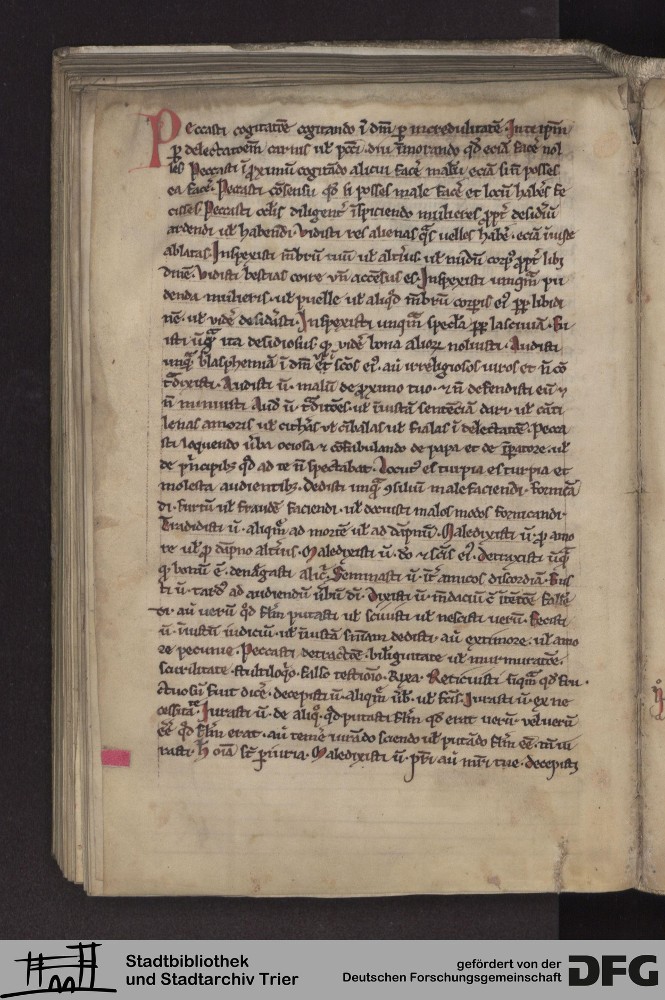 Peccasti cogitatōe cogitando ī dm̄ ꝑ incredulitatē. In te ip̄m
ꝑ delectatoēm carnis ul' pcc̄i. diu īmorando qd̄ eciā facē nol
les Peccasti ī ꝓximū cogitādo alicui facē malū eciā si n̄ posses
ea facē. Peccasti cōsensu qd̄ si posses male facē et locū habēs fe
cisses. Peccasti oclīs diligent' īspiciendo mulieres ꝓpt' desidiū
ardendi ul' habendi. Vidisti res alienas q̄s uelles habē. eciā iniuste
ablatas. Inspexisti mēbrū tuū ul' alt'ius ul' nudū corp' ꝓpt' libi
dinē. Vidisti bestias coire vn̄ accēsus es. Inspexisti unqm̄ pu
denda mulieris. ul' puelle ul' aliqd̄ mēbrū corpis ei' ꝓp' libidi
nē. ul' vidē desidasti. Inspexisti unqm̄ specl'a ꝓp' lasciuiā. Fu
isti ūq̄ ita desidiosus qd̄ vidē bona alioꝝ noluisti. Audisti
unq̄ blasphemiā ī dm̄ et scōs ei'. au irreligiosos iuros et n̄ cō
t̄dixisti. Audisti ū. malū de ꝓximo tuo. et n̄ defendisti eū
n̄ minuisti Aud ū. t̄ditōes ul' īiustā sentēciā dari ul' cāti
lenas amoris ul' citharas vl' cībalas ul' fialas ī delectatōe. Pecca
sti loquendo ūba ociosa et cōfabulando de papa et de īꝑatore. ul'
de p̄ncipibꝫ qd̄ ad te n̄ spectabat. Locut' es turpia es turpia et
molesta audientibꝫ. Dedisti unq̄ ꝯsiliū male faciendi. fornicā
di. furtū ul' fraudē faciendi. ul' docuisti malos modos fornicandi.
Tradidisti ū. aliqm̄ ad mortē ul' ad dāpnū. Maledixisti ū. ꝓ amo
re ul' ꝓ dāpno alt'ius. Maledixisti ū. do et scīs ei'. Detraxisti ūq̄
qd̄ bonū ē. denegasti alic'. Seminasti ū. īt' amicos discordiā. Fuis
ti ū. tard' ad audiendū ūbū di. Dixisti ū. mēdaciū c̄ ītētōe falle
di. au uerū qd̄ fl'm putasti ul' sciuisti ul' nescisti uerū. Fecisti
ū. īiustū iudiciū. ul' īiustā sn̄iam dedisti. au ex timore. ul' amo
re pecunie. Peccasti detractōe. biliguitate ul' murmuratōe.
scurrilitate. stultiloq̄o. falso testīoio. Reticuisti
ctuosū fuit dicē. decepisti ū. aliqm̄ ūb. ul' fcīs. Iurasti ū. ex ne
cessitate Iurasti ū. de aliq̄. qd̄ putasti fl'm qd̄ erat uerū vel uerū
eē qd̄ fl'm erat. au temē iurādo sciendo ul' putādo fl'm eē. tn̄ iu
rasti. h oīa st̄ ꝑiuria. Maledixisti ū. pr̄i au mr̄i tue. decepisti
Stadtbibliothek
und Stadtarchiv Trier
gefördert von der
Deutschen Forschungsgemeinschaft
DFG